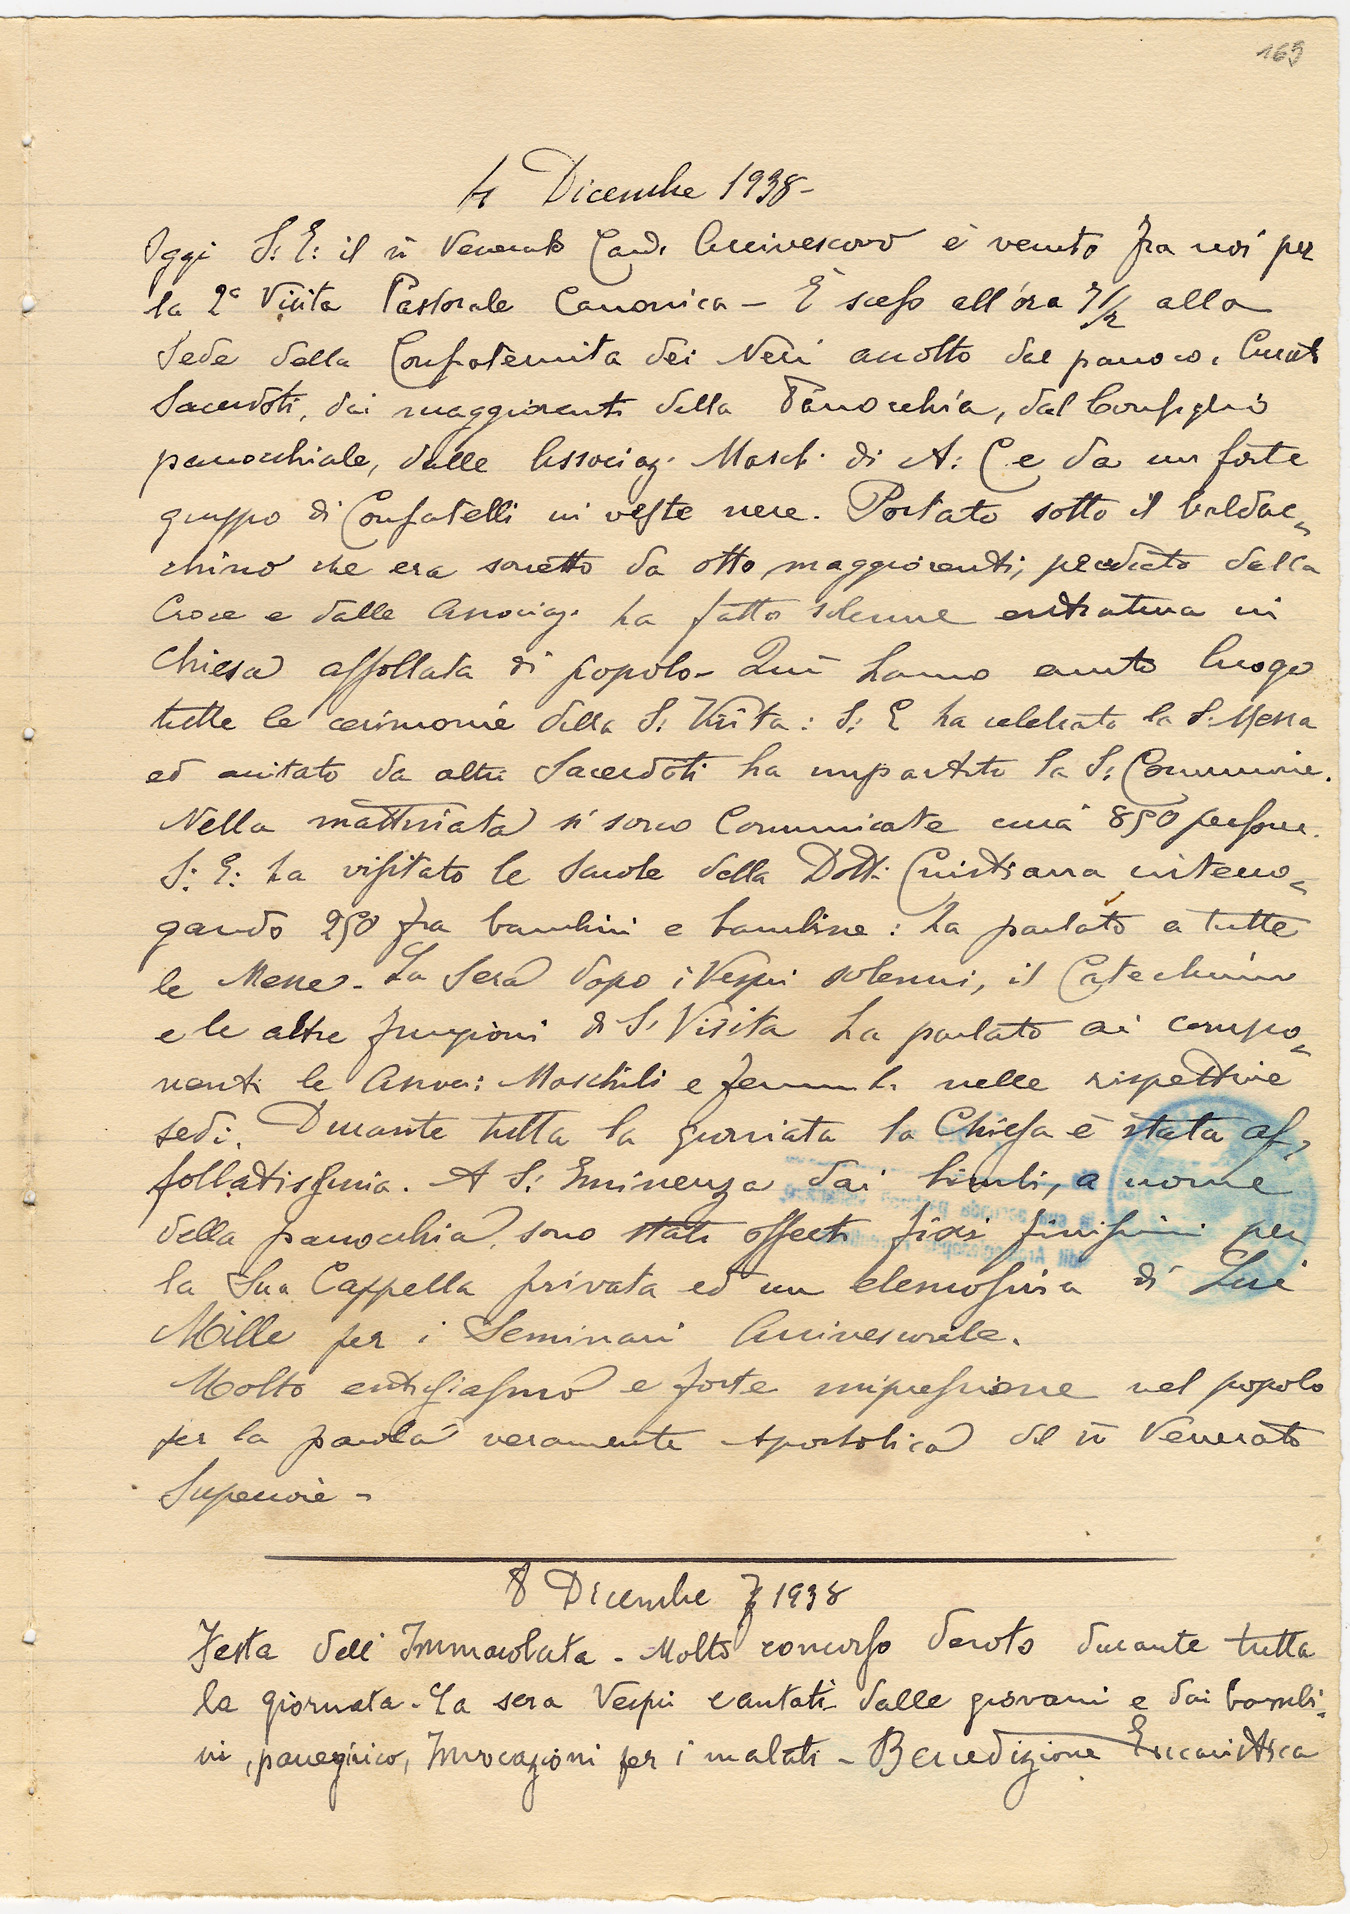 169
4 Dicembre 1938-
Oggi S: E: il n Venerato Card. Arcivescovo è venuto fra noi per
la 2ª Visita Pastorale Canonica - È sceso all'ora 7 1/2 alla
Sede della Confraternita dei Neri accolto dal parroco, Curati
Sacerdoti, dai maggiorenti della Parrocchia, dal Consiglio
parrocchiale, dalle Associaz. Masch. di A: C e da un forte
gruppo di Confratelli in veste nere. Portato sotto il baldac=
chino che era sorretto da otto maggiorenti, preceduto dalla
Croce e dalle Associaz. ha fatto solenne entratura in
Chiesa affollata di popolo- Quì hanno avuto luogo
tutte le cerimonie della S. Visita: S: E ha celebrato la S. Messa
ed aiutato da altri Sacerdoti ha impartito la S. Comunione.
Nella mattinata si sono Comunicate circa 850 persone.
S: E: ha visitato le Scuole della Dott. Cristiana interro=
gando 250 fra bambini e bambine: ha parlato a tutte
le Messe. La Sera dopo i Vespri solenni, il Catechismo
e le altre funzioni di S. Visita ha parlato ai compo=
nenti le Assoc: Maschili e femmili nelle rispettive
sedi. Durante tutta la giornata la Chiesa è stata af=
follatissima. A S: Eminenza dai bimbi, a nome
della parrocchia, sono stati offerti fiori finissimi per
la Sua Cappella privata ed un elemosina di Lire
Mille per i Seminari Arcivescovile.
Molto entusiasmo e forte impressione nel popolo
per la parola veramente Apostolica del n Venerato
Superiore -
8 Dicembre 1938
Festa dell' Immacolata - Molto concorso devoto durante tutta
la giornata - La sera Vespri cantati dalle giovani e dai bambi=
ni, panegirico, Invocazioni per i malati - Benedizione Eucaristica